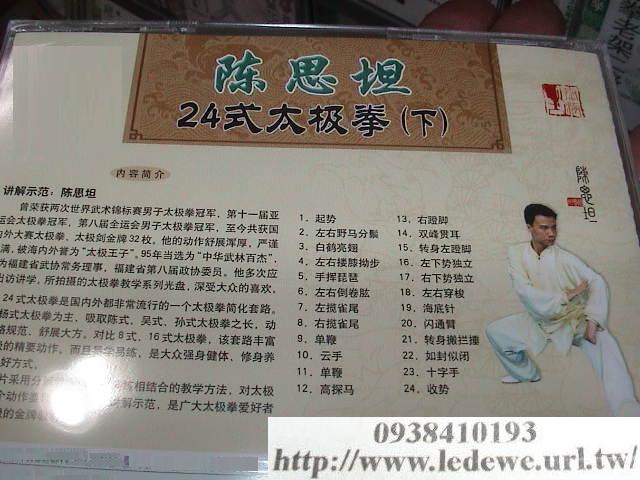 陈思坦
24式太极拳(下)
内容简介
讲解示范：陈思坦
曾荣获两次世界武术锦标赛男子太极拳冠军，第十一届亚
运会太极拳冠军，第八届全运会男子太极拳冠军，至今共获国
内外大赛太极拳、太极剑金牌32枚。他的动作舒展浑厚，严谨
满，被海内外誉为"太极王子"。95年当选为"中华武林百杰"，
为福建省武协常务理事，福建省第八届政协委员。他多次应
出访讲学，所拍摄的太极拳教学系列光盘，深受大众的喜欢。
24式太极拳是国内外都非常流行的一个太极拳简化套路。
杨式太极拳为主，吸取陈式，吴式，孙式太极拳之长，动
路规范、舒展大方。对比8式，16式太极拳，该套路丰富
极的精要动作。而且易学易练，是大众强身健体、修身养
好方式。
片采用分解 练相结合的教学方法，对太极
个动作 讲解示范，是广大太极拳爱好者
极的金牌
1、起势
2、左右野马分鬃
3、白鹤亮翅
4、左右搂膝拗步
5、手挥琵琶
6、左右倒卷肱
7、左揽雀尾
8、右揽雀尾
9、单鞭
10、云手
11、单鞭
12、高探马
13、右蹬脚
14、双峰贯耳
15、转身左蹬脚
16、左下势独立
17、右下势独立
18、左右穿梭
19、海底针
20、闪通臂
21、转身搬拦捶
22、如封似闭
23、十字手
24、收势
陈思坦
0938410193
http://www.ledewe.url.tw/